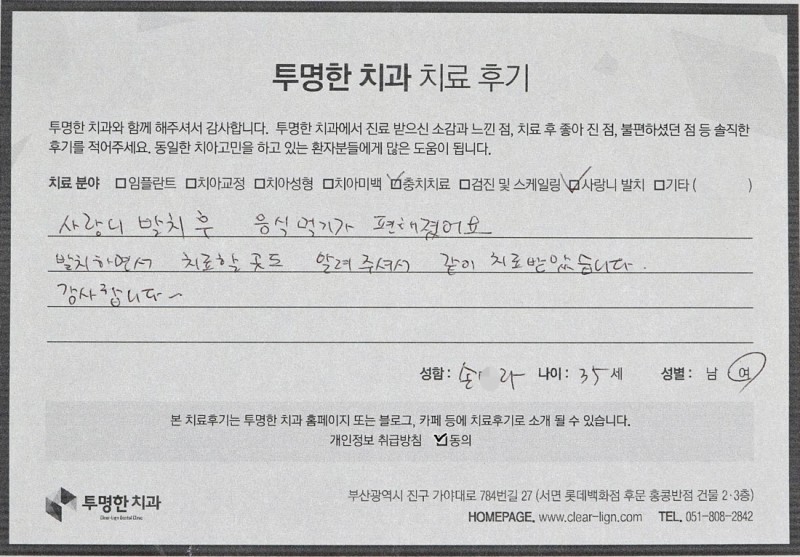 투명한 치과 치료 후기
투명한 치과와 함께 해주셔서 감사합니다. 투명한 치과에서 진료 받으신 소감과 느낀 점, 치료 후 좋아 진 점, 불편하셨던 점 등 솔직한
후기를 적어주세요. 동일한 치아고민을 하고 있는 환자분들에게 많은 도움이 됩니다.
치료 분야 □임플란트 □치아교정 □치아성형 □치아미백 ☑충치치료 □검진 및 스케일링 ☑사랑니 발치 □기타 ( )
사랑니 발치 후 음식 먹기가 편해졌어요
발치하면서 치료할 곳도 알려주셔서 같이 치료받았습니다.
감사합니다~
성함: 손 라 나이: 35 세 성별: 남 여
본 치료후기는 투명한 치과 홈페이지 또는 블로그, 카페 등에 치료후기로 소개 될 수 있습니다.
개인정보 취급방침 ☑동의
투명한 치과
Clear-lign Dental Clinic
부산광역시 진구 가야대로 784번길 27 (서면 롯데백화점 후문 홍콩반점 건물 2·3층)
HOMEPAGE. www.clear-lign.com TEL. 051-808-2842